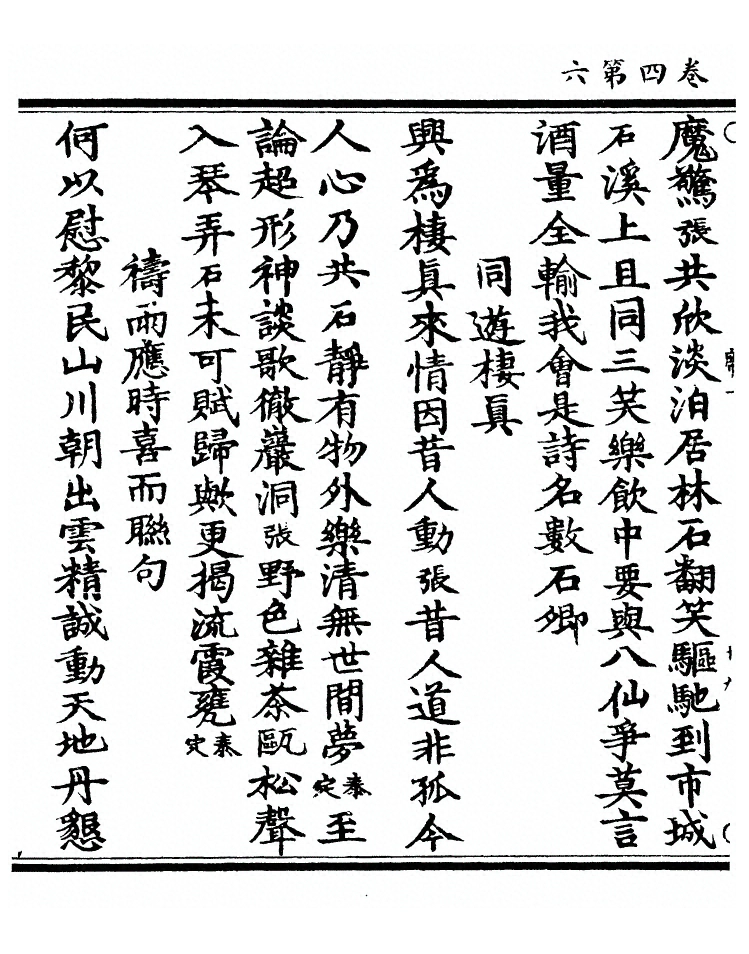 卷四第六
魔驚張共欣淡泊居林石翻笑驅馳到市城
石溪上且同三笑樂飲中要與八仙爭莫言
酒量全輸我會是詩名數石卿
同遊棲真
興爲棲真來情因昔人動張昔人道非孤今
人心乃共石靜有物外樂清無世間夢秦定至
論超形神談歌徹巖洞張野色雜茶甌松聲
入琴弄石未可賦歸歟更揭流霞甕秦定
禱雨應時喜而聯句
何以慰黎民山川朝出雲精誠動天地丹懇